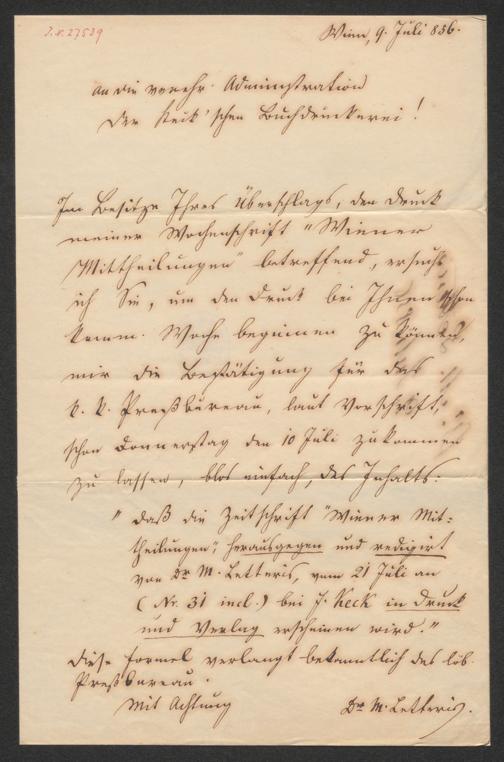 J.N. 27539
Wien, 9. Juli 856.
An die verehr. Administration
der Keck'schen Buchdruckerei!
Im Besitze Ihres Überschlags, den Druck
meiner Wochenschrift "Wiener
Mittheilungen" betreffend, ersuche
ich Sie, um den Druck bei Ihnen schon
komm. Woche beginnen zu können,
mir die Bestätigung für das
k. k. Preßbureau, laut Vorschrift,
schon Donnerstag den 10 Juli zukommen
zu lassen, blos einfach, des Inhalts:
" daß die Zeitschrift "Wiener Mit-
theilungen", herausgegen und redigirt
von Dr M. Letteris, vom 21 Juli an
(Nr. 31 incl.) bei J. Keck in Druck
und Verlag erscheinen wird."
Diese Formel verlangt bekanntlich das löb.
Preßbureau.
Mit Achtung
Dr M. Letteris.